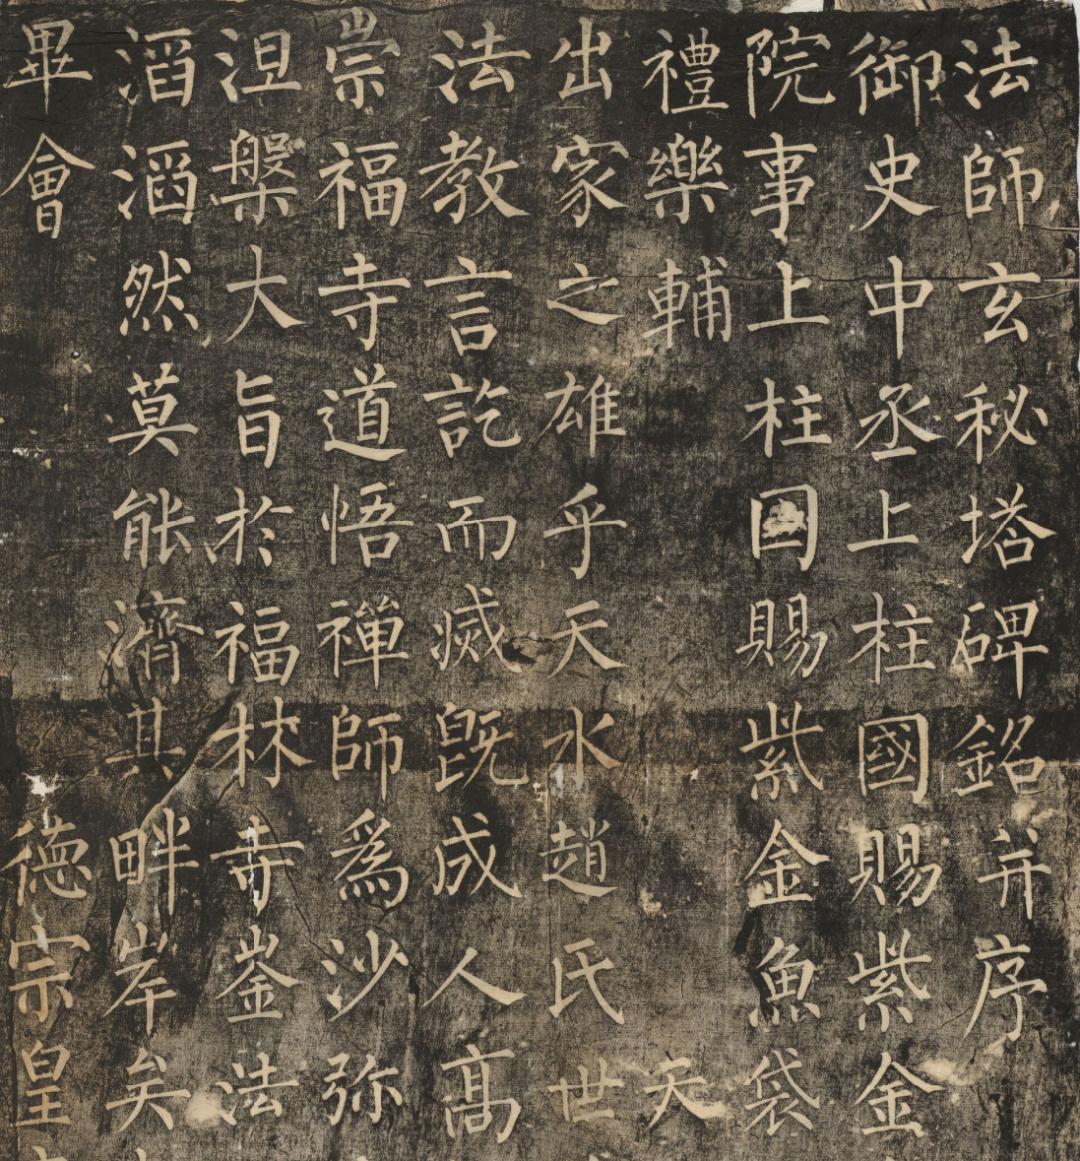 法師玄秘塔碑銘并序
御史中丞上柱國賜紫金
院事上柱国賜紫金魚袋
禮樂輔天
出家之雄乎天水趙氏世
法教言訖而滅既成人高
崇福寺道悟禪師為沙弥
涅槃大旨於福林寺崟法
滔滔然莫能濟其畔岸矣
畢會德宗皇